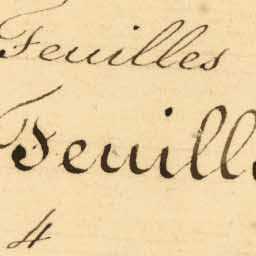 Feuilles
Feuill
4